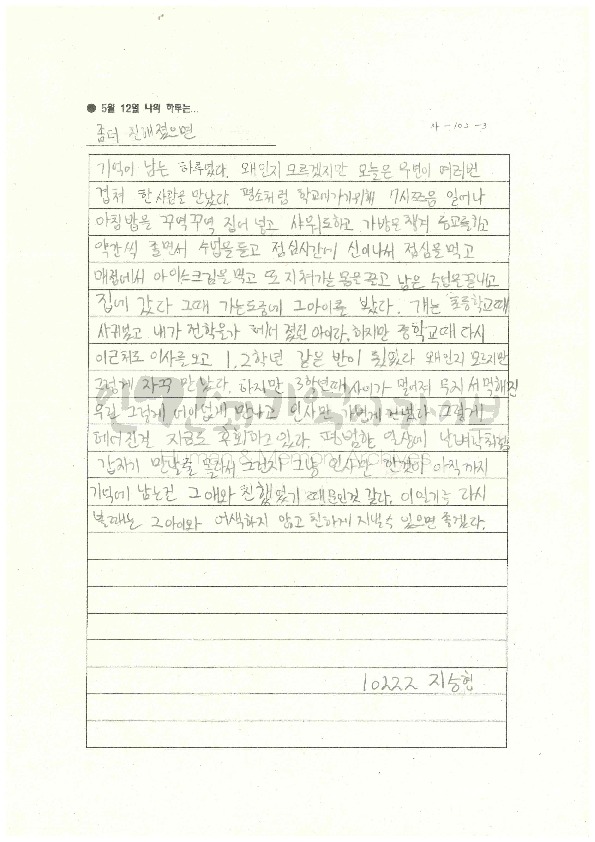 ● 5월 12일 나의 하루는...
자-102-3
좀더 친해졌으면
기억이 남는 하루였다. 왜인지 모르겠지만 오늘은 우연이 여러번
겹쳐 한사람을 만났다. 평소처럼 학교에가기위해 7시쯤 일어나
아침밥을 꾸역꾸역 집어 넣고 샤워도하고 가방도 챙겨 등교를하고
약간씩 졸면서 수업을듣고 점심시간에 신이나서 점심을 먹고
매점에서 아이스크림을 먹고 또 지쳐가는 몸을 끌고 남은 수업을끝내고
집에 갔다 그때 가는도중에 그아이를 봤다. 걔는 초등학교때
사귀었고 내가 전학을가 헤어 졌던 아이다. 하지만 중학교때 다시
이근처로 이사를오고 1,2학년 같은 반이 됬었다 왜인지 모르지만
그렇게 자꾸 만났다. 하지만 3학년때 사이가 멀어져 무지 서먹해진
우린 그렇게 어이없게 만나고 인사만 가볍게 건넸다 그렇게
헤어진건 지금도 후회하고 있다. 평범한 일상에 날벼락처럼
갑자기 만날줄 몰라서 그런지 그냥 인사만 한것이 아직까지
기억에 남는건 그애와 친했었기 때문인것 같다. 이일기를 다시
볼때는 그아이와 어색하지 않고 친하게 지낼수 있으면 좋겠다.
10222 지승현
인간과기억아카이브
Human & Memory Archives